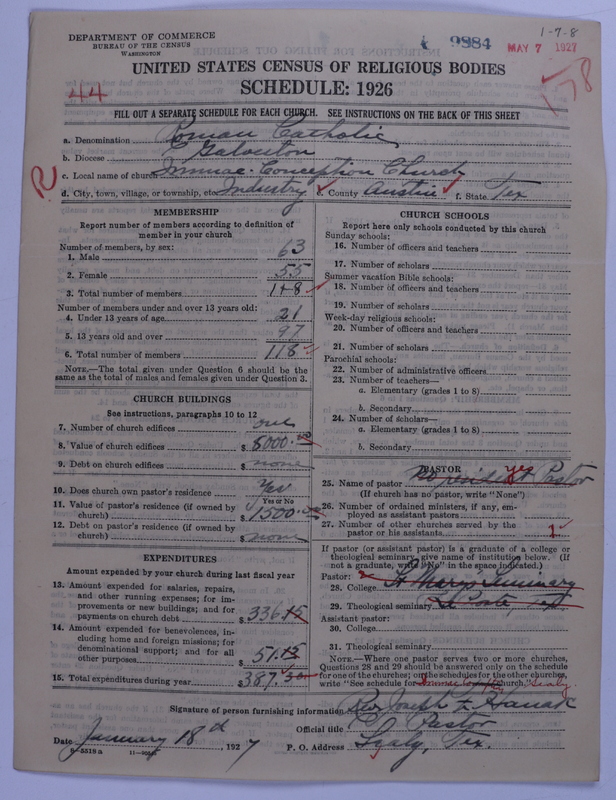 1-7-8
DEPARTMENT OF COMMERCE
BUREAU OF THE CENSUS
WASHINGTON
9884
MAY 7 1927
178
UNITED STATES CENSUS OF RELIGIOUS BODIES
SCHEDULE: 1926
44
FILL OUT A SEPARATE SCHEDULE FOR EACH CHURCH. SEE INSTRUCTIONS ON THE BACK OF THIS SHEET
a. Denomination Roman Catholic
b. Diocese Galveston
c. Local name of church Immac. Conception Church
R
d. City, town, village, or township, etc. Industry e. County Austin f. State Tex
MEMBERSHIP
Report number of members according to definition of
member in your church
Number of members, by sex:
1. Male 63
2. Female 55
3. Total number of members 118
Number of members under and over 13 years old:
4. Under 13 years of age 21
5. 13 years old and over 97
6. Total number of members 118
NOTE.—The total given under Question 6 should be
same as the total of males and females given under Question 3.
CHURCH BUILDINGS
See instructions, paragraphs 10 to 12
7. Number of church edifices one
8. Value of church edifices $ 8000.00
9. Debt on church edifices $ none
10. Does church own pastor's residence Yes
Yes or No
11. Value of pastor's residence (if owned by
church) $ 1500.00
12. Debt on pastor's residence (if owned by
church) $ none
EXPENDITURES
Amount expended by your church during last fiscal year
13. Amount expended for salaries, repairs,
and other running expenses; for im-
provements or new buildings; and for
payments on church debt $ 336.15
14. Amount expended for benevolences, in-
cluding home and foreign missions; for
denominational support; and for all
other purposes $ 51.15
15. Total expenditures during year $ 387.30
CHURCH SCHOOLS
Report here only schools conducted by this church
Sunday schools:
16. Number of officers and teachers
17. Number of scholars
Summer vacation Bible schools:
18. Number of officers and teachers
19. Number of scholars
Week-day religious schools:
20. Number of officers and teachers
21. Number of scholars
Parochial schools:
22. Number of administrative officers
23. Number of teachers—
a. Elementary (grades 1 to 8)
b. Secondary
24. Number of scholars—
a. Elementary (grades 1 to 8)
b. Secondary
PASTOR
yes
25. Name of pastor No resident Pastor
(If church has no pastor, write "None")
26. Number of ordained ministers, if any, em-
ployed as assistant pastors
27. Number of other churches served by the
pastor or his assistants 1
If pastor (or assistant pastor) is a graduate of a college or
theological seminary, give name of institution below. (If
not a graduate, write "No" in the space indicated.)
Pastor:
28. College St Marys Seminary
29. Theological seminary La Porte, Tex.
Assistant pastor:
30. College
31. Theological seminary
NOTE.—Where one pastor serves two or more churches,
Questions 28 and 29 should be answered only on the schedule
for one of the churches; on the schedules for the other churches,
write "See schedule for church," Sealy
Signature of person furnishing information Rev Joseph F. Hanak
Official title Pastor
Date January 18th 1927
P. O. Address Sealy, Tex.